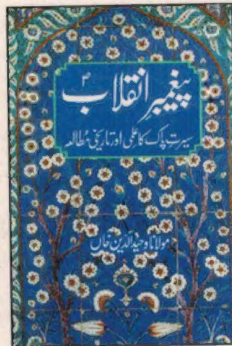 پیغمبرِ انقلاب
سیرتِ پاک کا علمی اور تاریخی مطالعہ
مولانا وحیدالدین خاں